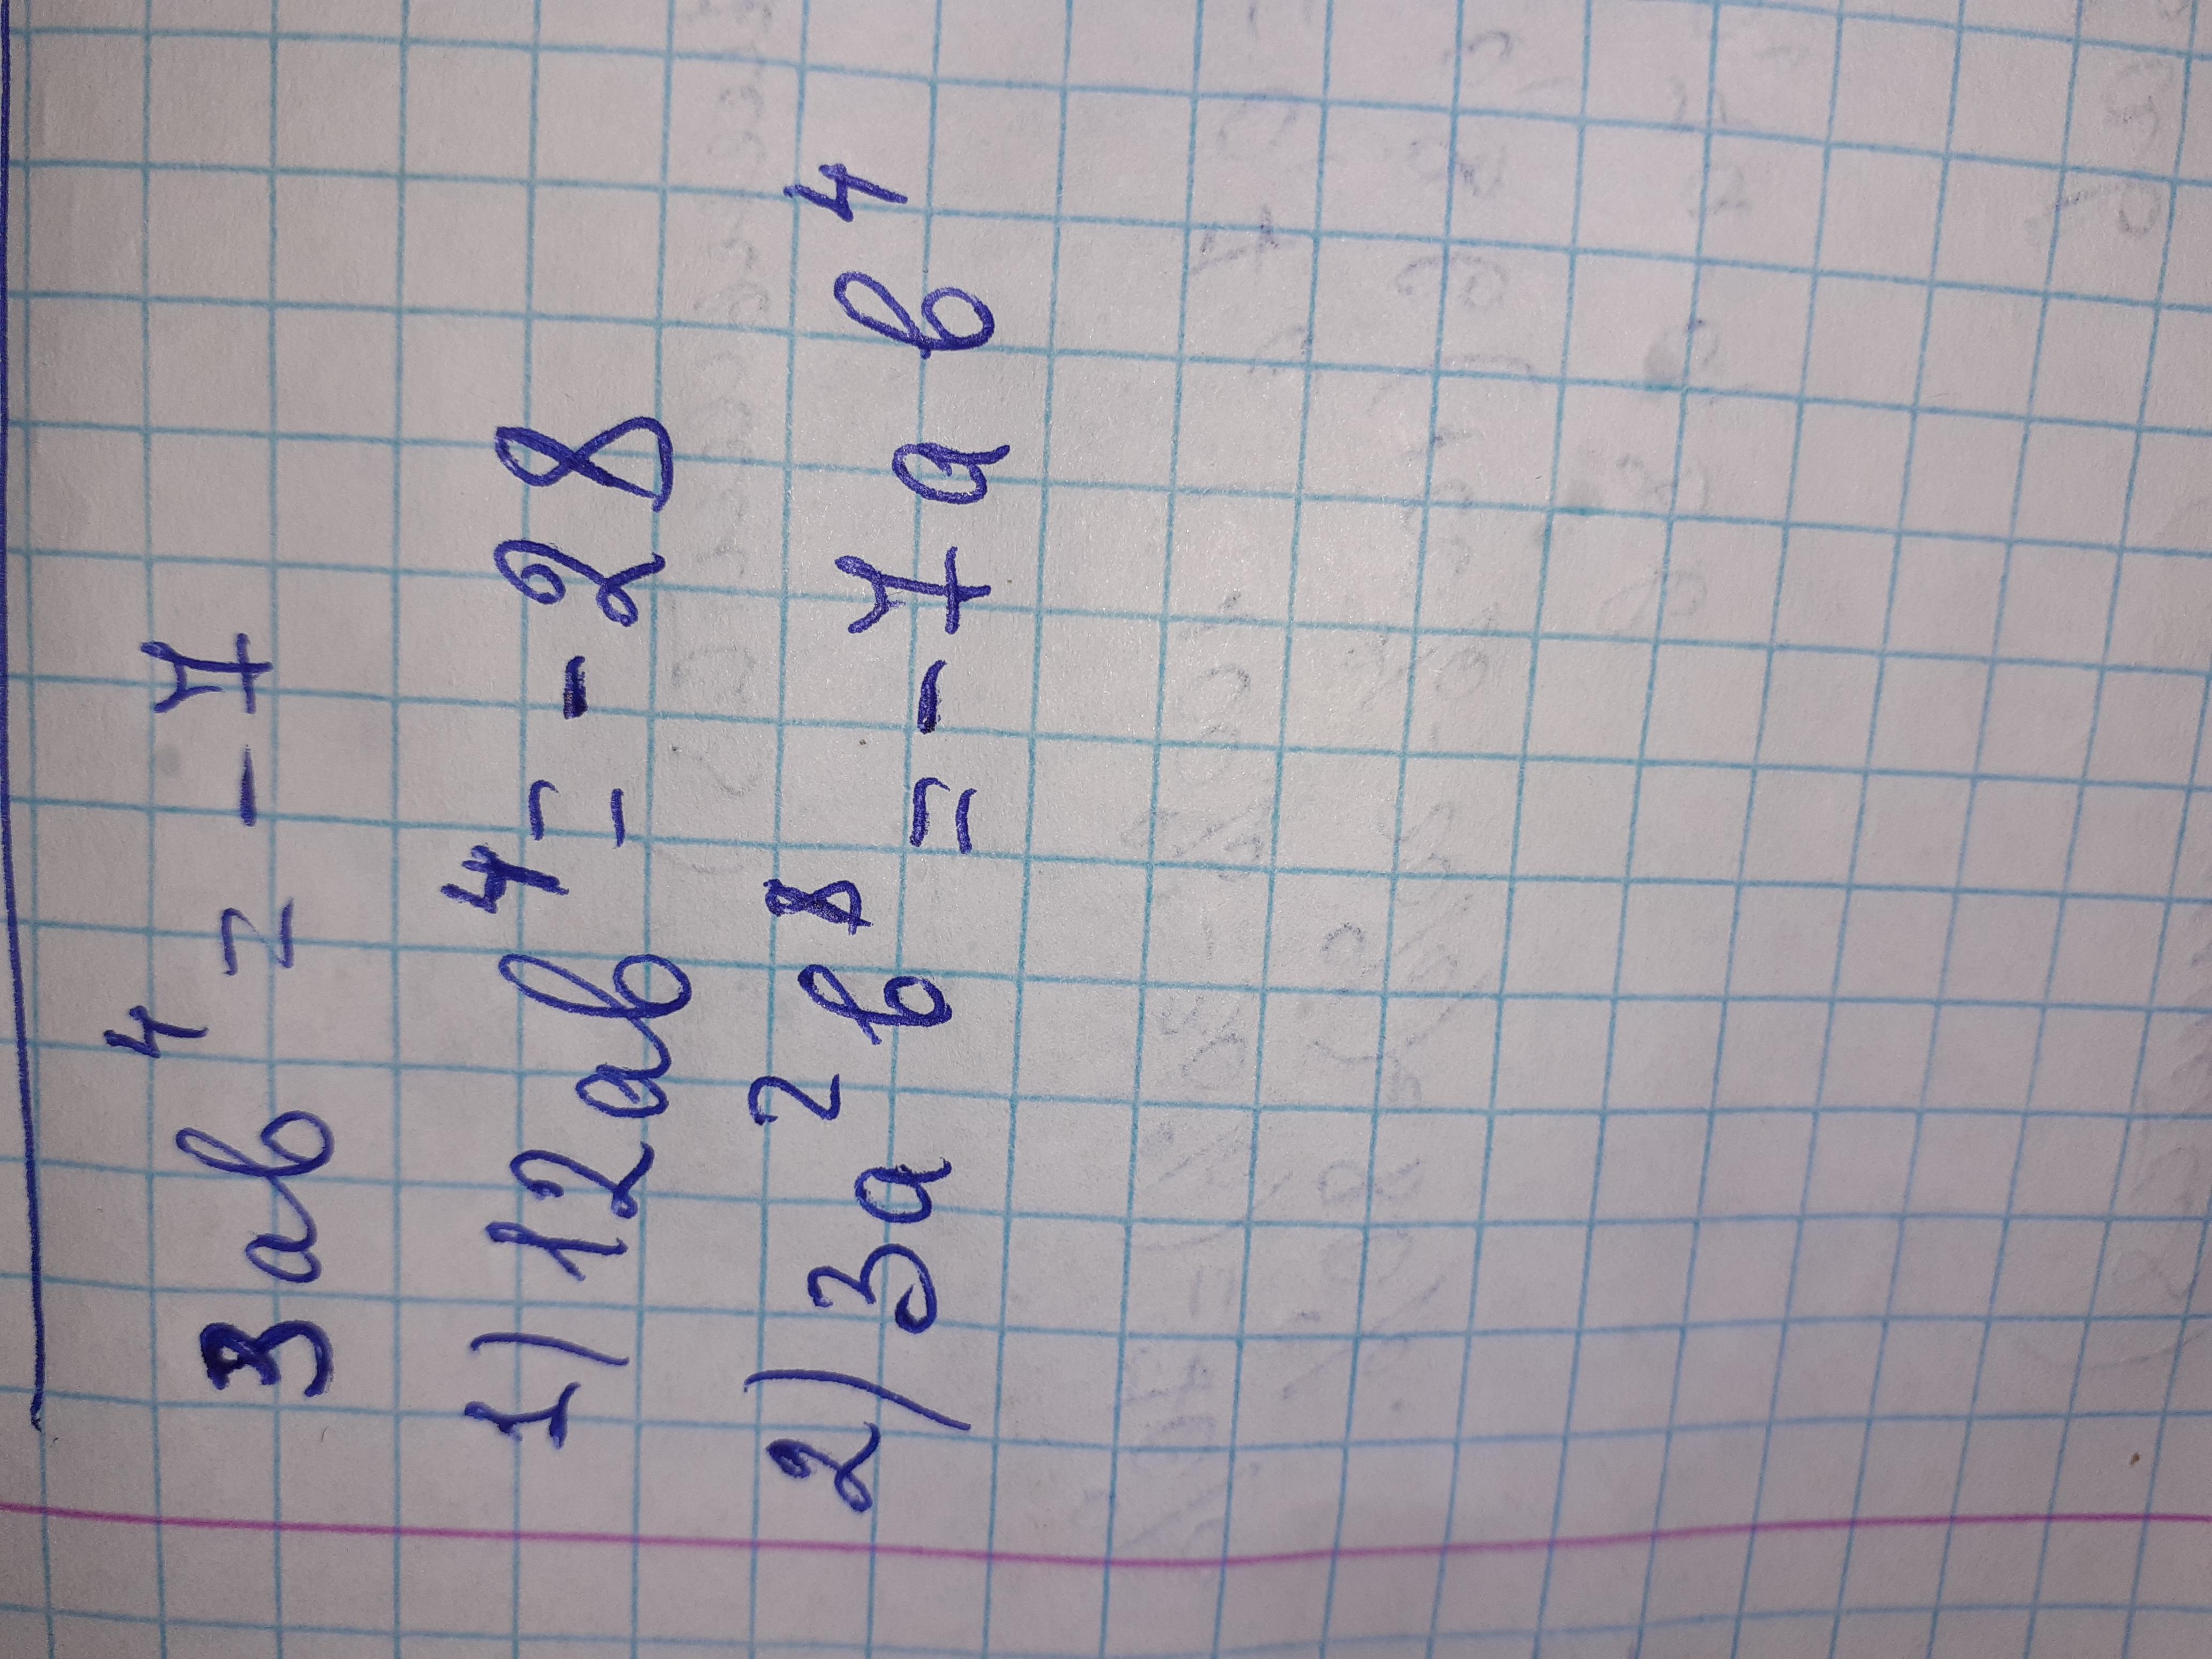 3ab⁴ = -7
1) 12ab⁴ = -28
2) 3a²b⁸ = -7ab⁴